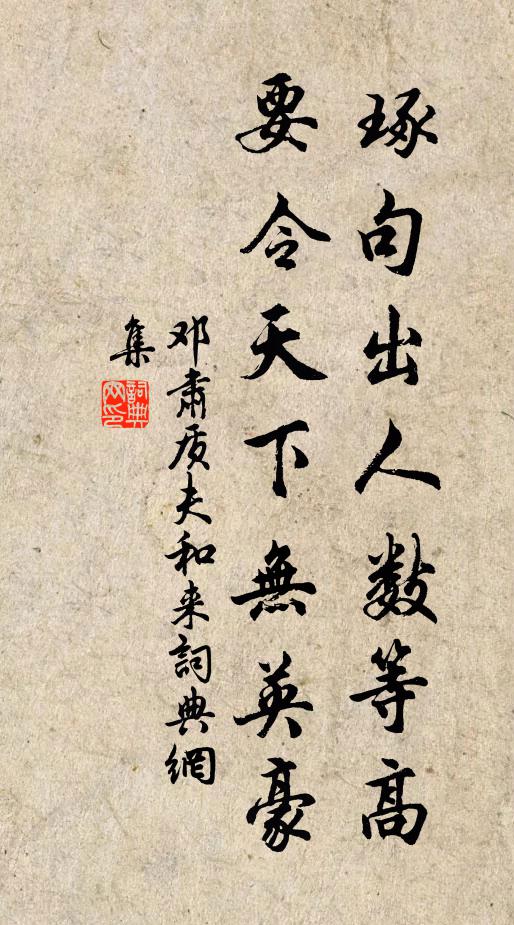 琢句出人数等高
要令天下無英豪
邓肃质夫和来詞典網
集
詞典
网印